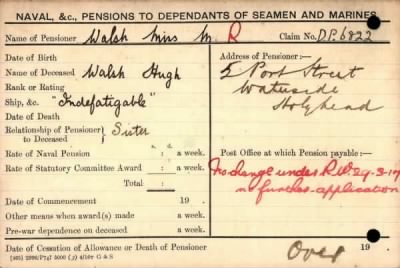 NAVAL, &c., PENSIONS TO DEPENDANTS OF SEAMEN AND MARINES.
Name of Pensioner Walsh Miss M. R Claim No. D.P. 6822
Date of Birth
Name of Deceased Walsh Hugh
Rank or Rating
Ship, &c. "Indefatigable"
Date of Death
Relationship of Pensioner to Deceased } Sister
Address of Pensioner:—
5 Port Street
Waterside
Holyhead
Rate of Naval Pension : a week.
Rate of Statutory Committee Award : a week.
Total : a week.
Post Office at which Pension payable:—
No change under R.W. 29-3-17
no further application
Date of Commencement 19 .
Other means when award(s) made a week.
Pre-war dependence on deceased a week.
Date of Cessation of Allowance or Death of Pensioner 19
Over